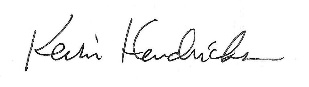 Kevin Hendricks